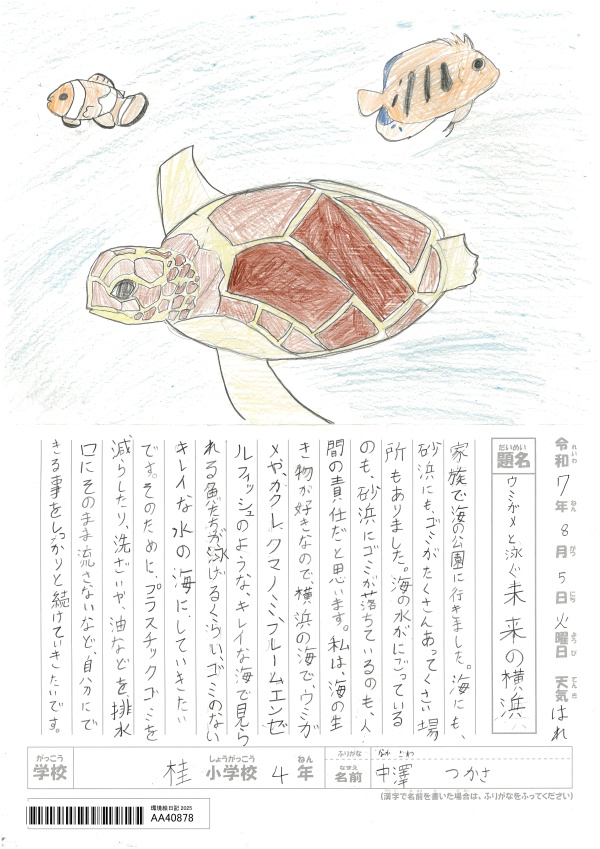 令和7年8月5日火曜日 天気 はれ
れいわ ねん がつ にち ようび てんき
だいめい
題名 ウミガメと泳ぐ未来の横浜
家族で海の公園に行きました。海にも、
砂浜にも、ゴミがたくさんあってくさい場
所もありました。海の水がにごっている
のも、砂浜にゴミが落ちているのも、人
間の責任だと思います。私は、海の生
き物が好きなので、横浜の海で、ウミガ
メや、カクレクマノミ、フレームエンゼ
ルフィッシュのような、キレイな海で見ら
れる魚たちが泳げるくらい、ゴミのない
キレイな水の海に、していきたい
です。そのために、プラスチックゴミを
減らしたり、洗ざいや、油などを、排水
口にそのまま流さないなど、自分にで
きる事をしっかりと続けていきたいです。
がっこう しょうがっこう ねん
学校 桂 小学校 4年
ふりがな なか ざわ
なまえ
名前 中澤 つかさ
(漢字で名前を書いた場合は、ふりがなをふってください)
環境絵日記 2025
AA40878